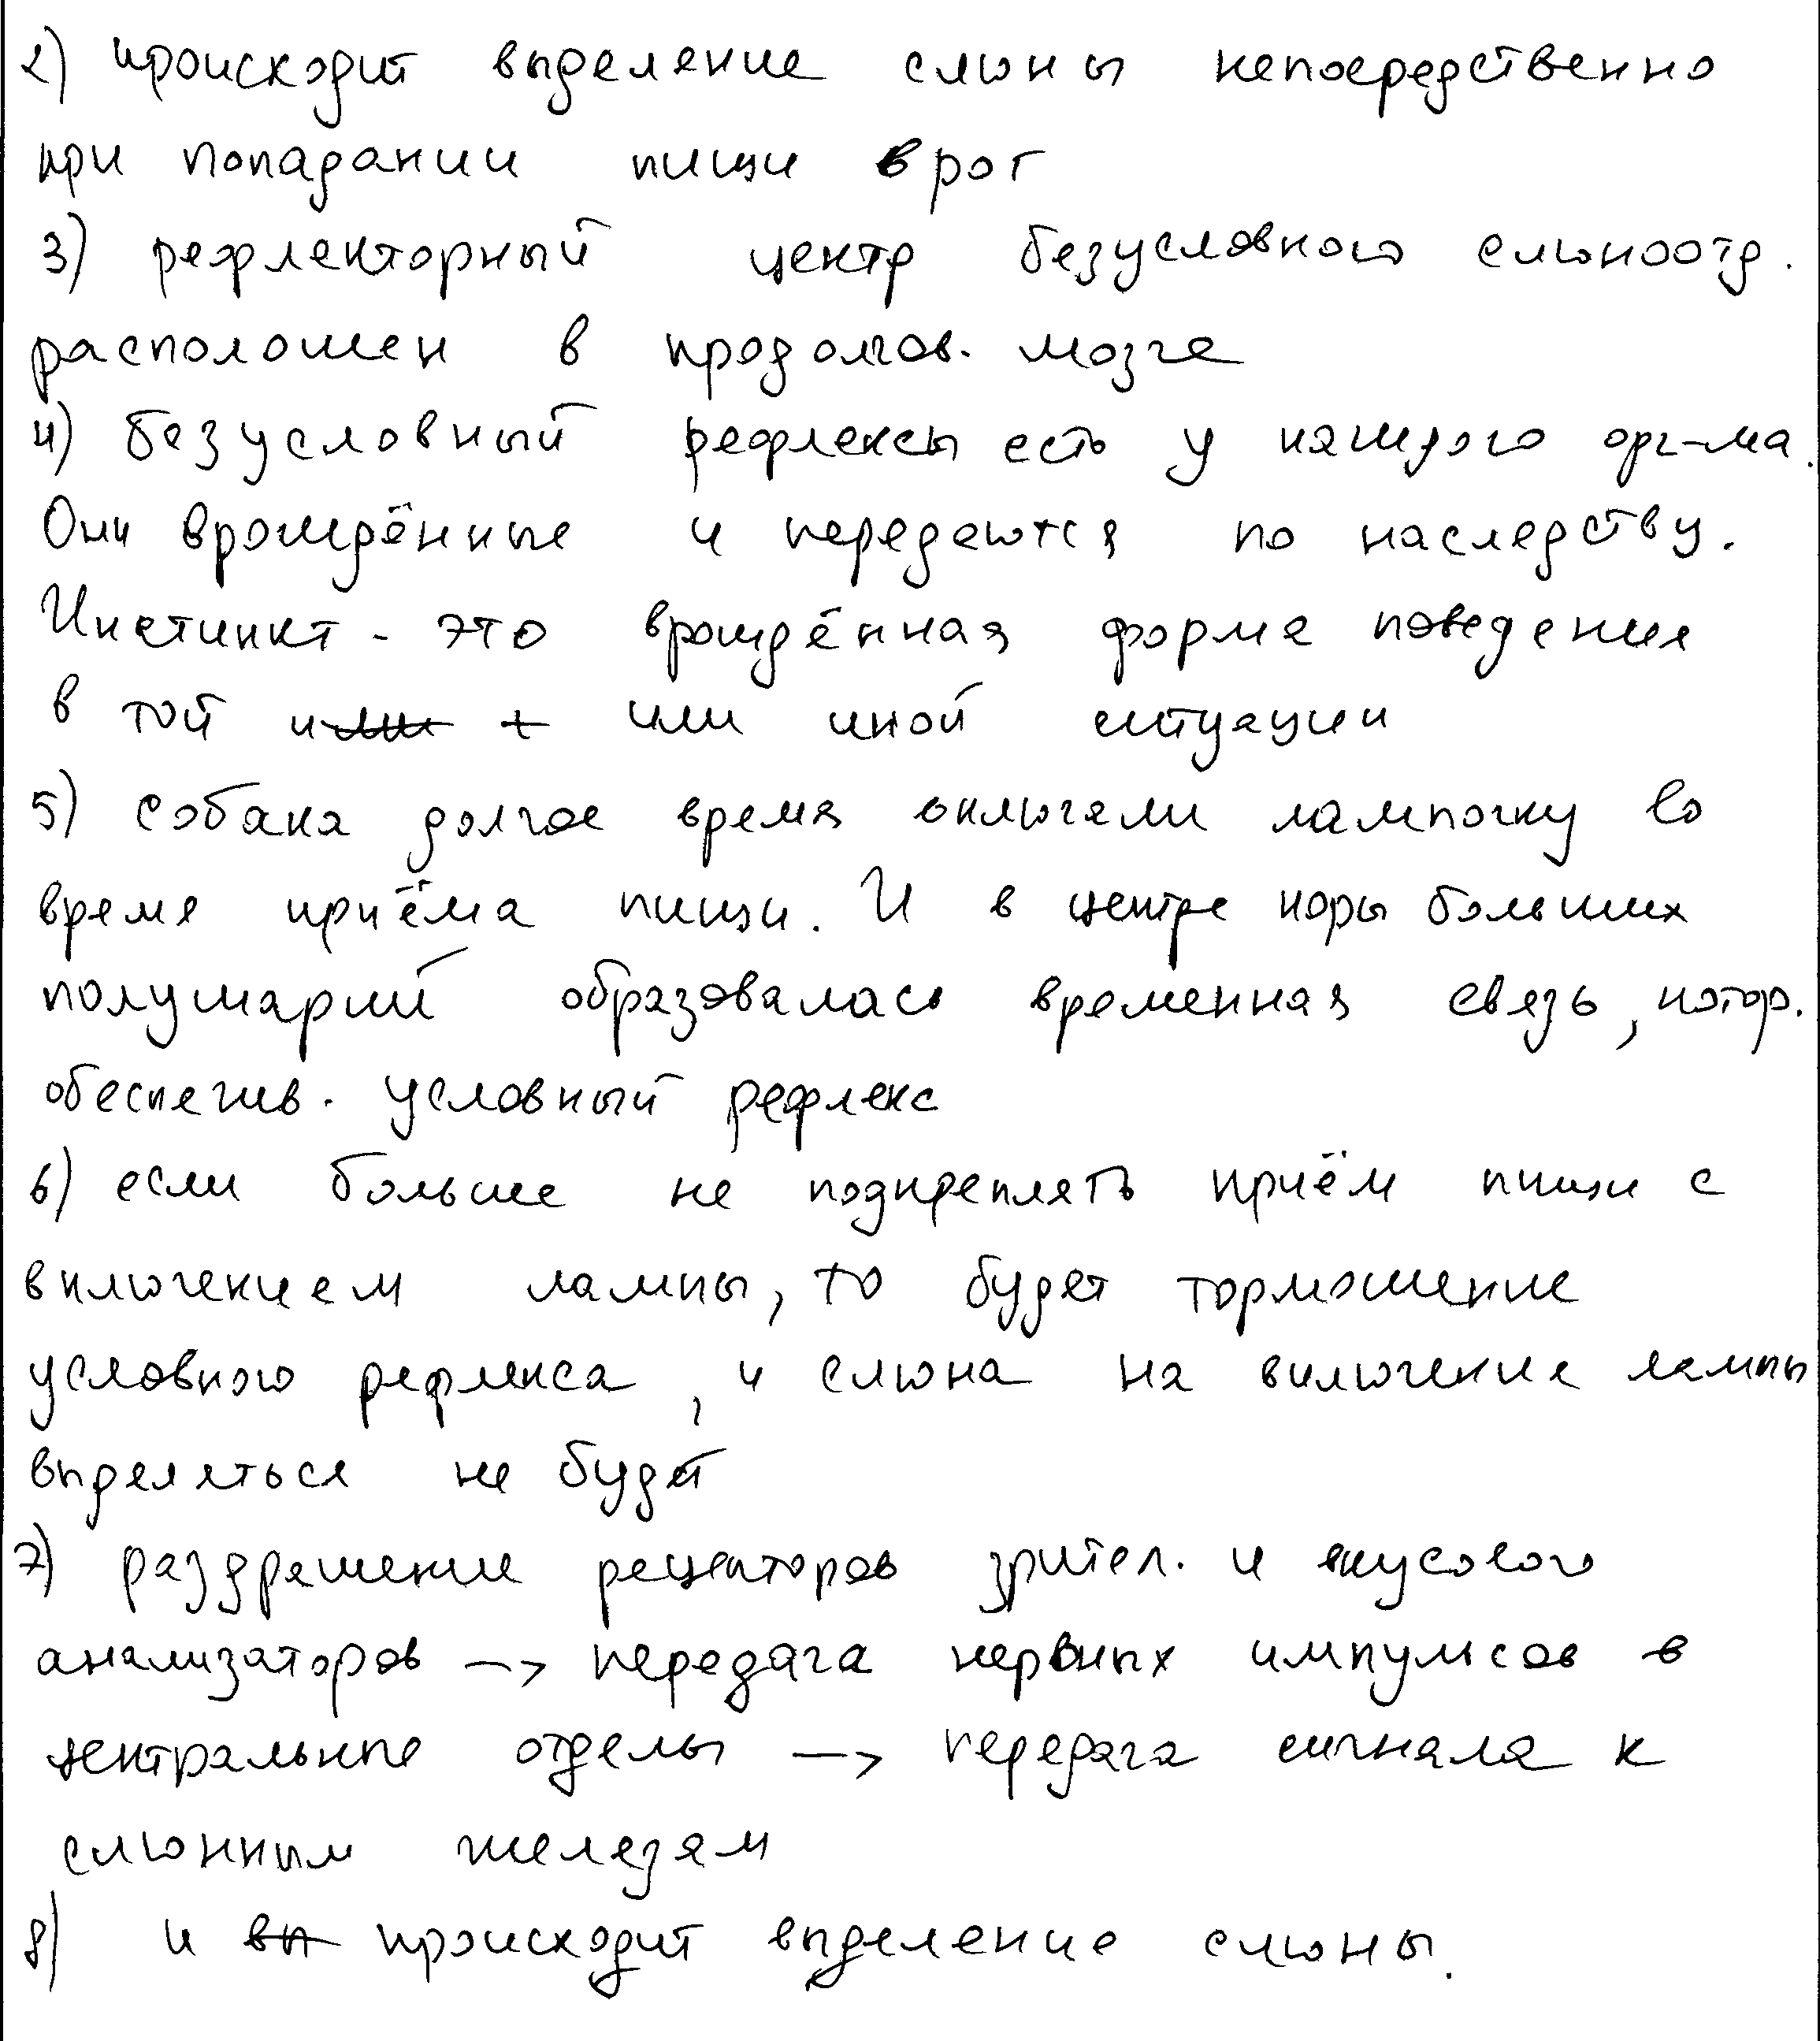 2) происходит выделение слюны непосредственно
при попадании пищи в рот
3) рефлекторный центр безусловного слюноотд.
расположен в продолгов. мозге
4) безусловный рефлексы есть у каждого орг-ма.
Они врождённые и передаются по наследству.
Инстинкт - это врождённая форма поведения
в той или + или иной ситуации
5) собака долгое время включали лампочку во
время приёма пищи. И в центре коры больших
полушарий образовалась временная связь, котор.
обеспечив. условный рефлекс
6) если больше не подкреплять приём пищи с
включением лампы, то будет торможение
условного рефлекса, и слюна на включение лампы
выделяться не будет
7) раздражение рецепторов зрител. и вкусового
анализаторов –> передача нервных импульсов в
центральные отделы –> передача сигнала к
слюнным железам
8) и вы происходит выделение слюны.